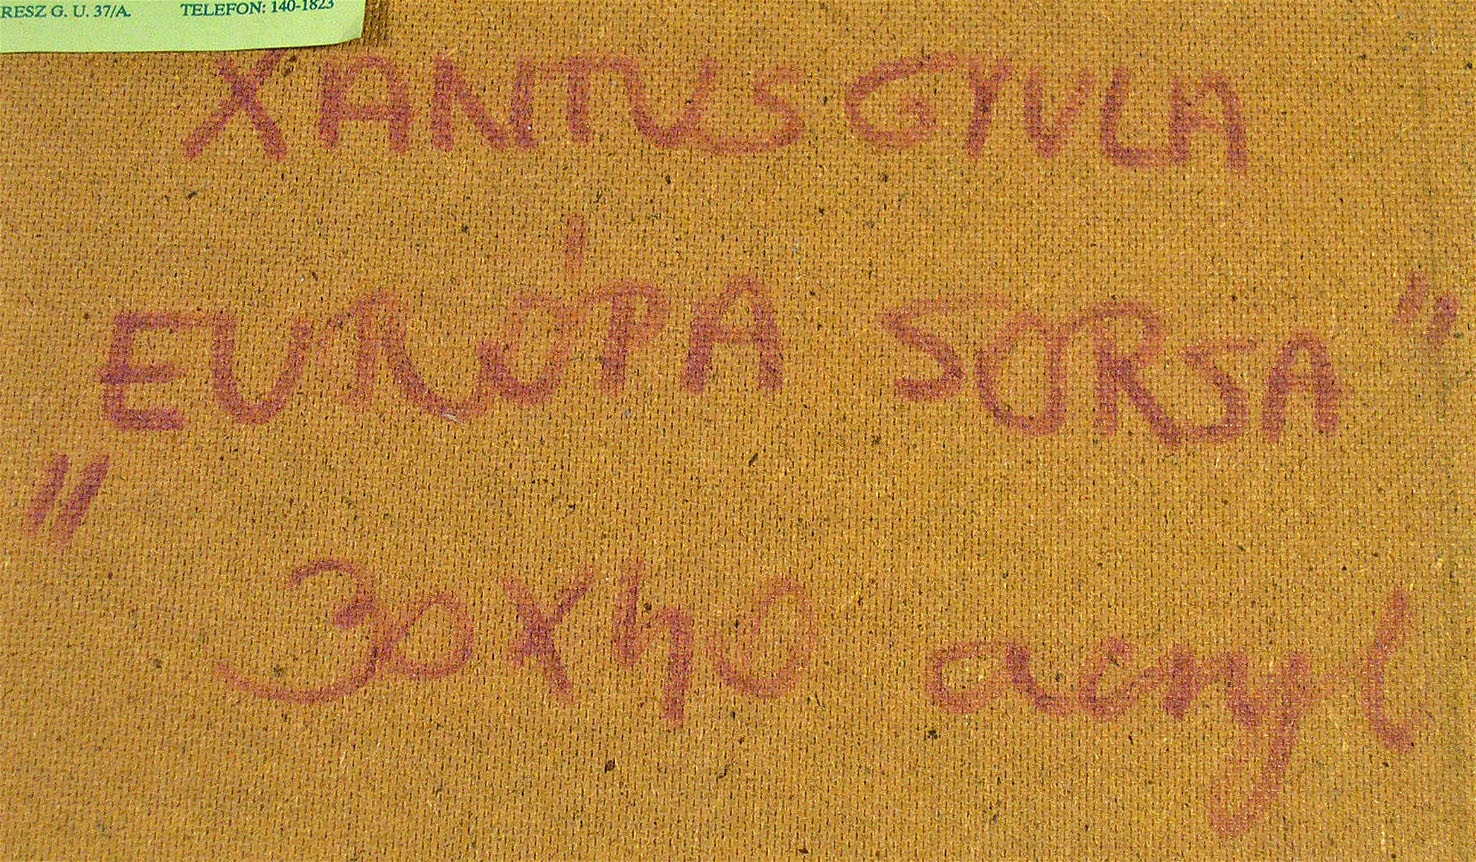 RESZ G. U. 37/A. TELEFON: 140-1823
XANTUS GYULA
"EURÓPA SORSA"
30X40 acryl